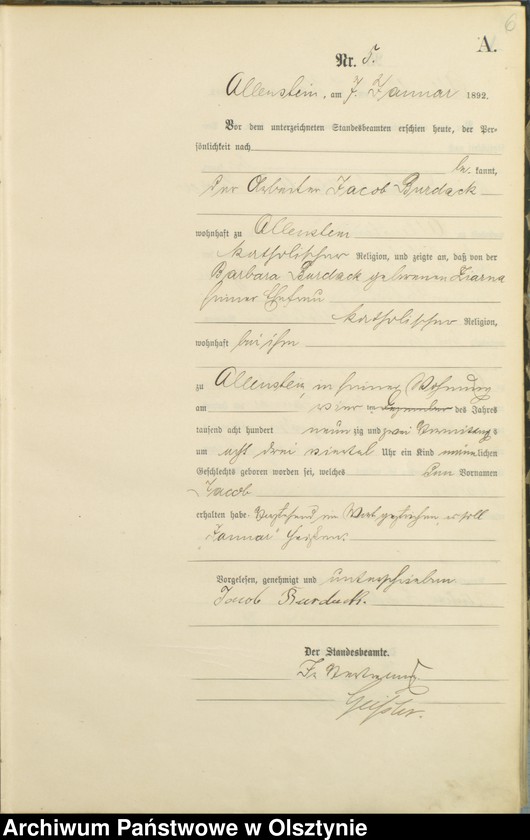 6
A.
Nr. 5.
Allenstein, am 7 Januar 1892.
Vor dem unterzeichneten Standesbeamten erschien heute, der Per-
sönlichkeit nach
be kannt,
der Arbeiter Jacob Burdack
wohnhaft zu Allenstein
katholischer Religion, und zeigte an, daß von der
Barbara Burdack geborenen
seiner Ehefrau
katholischer Religion,
wohnhaft bei ihm
zu Allenstein, in seiner Wohnung
am vier ten Dezember des Jahres
tausend acht hundert neun zig und zwei Vormittags
um acht drei viertel Uhr ein Kind männlichen
Geschlechts geboren worden sei, welches den Vornamen
Jacob
erhalten habe. Vorstehend ein Wort gestrichen, es soll
"Januar" heißen.
Vorgelesen, genehmigt und unterschrieben
Jacob Burdack.
Der Standesbeamte.
In Vertretung
Archiwum Państwowe w Olsztynie